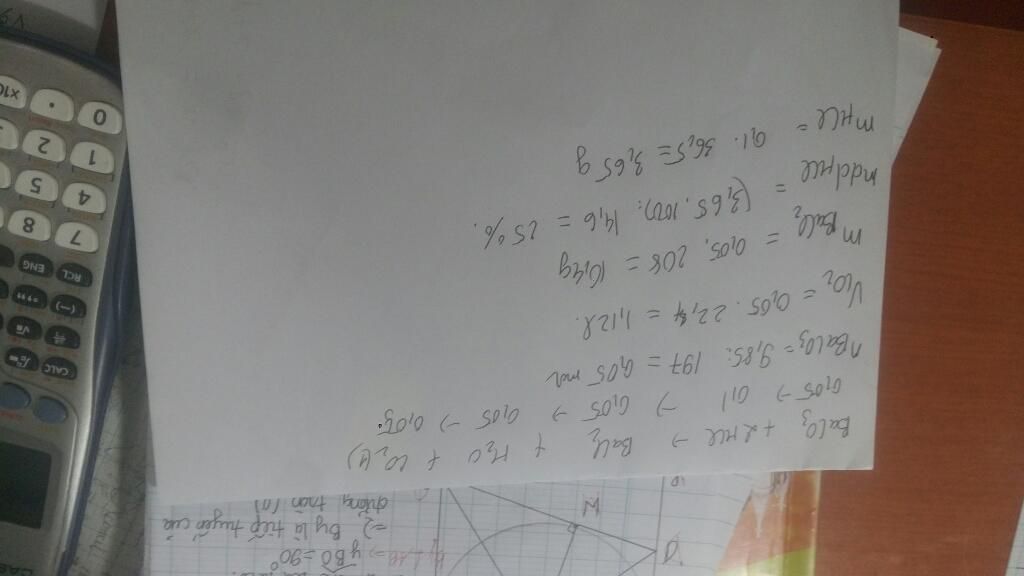 BaCO3 + 2HCl → BaCl2 + H2O + CO2(k)
0,05 → 0,1 → 0,05 → 0,05 → 0,05.
nBaCO3 = 9,85: 197 = 0,05 mol
VCO2 = 0,05 . 22,4 = 1,12l.
mBaCl2 = 0,05. 208 = 10,4g
mddHCl = (3,65.100): 14,6 = 25%.
mHCl = 0,1. 36,5 = 3,65 g
yBO = 90°
=> By là tiếp tuyến của
đường tròn (O)
M
D
CALC
(-)
RCL
ENG
7
8
4
5
1
2
0
.
×10